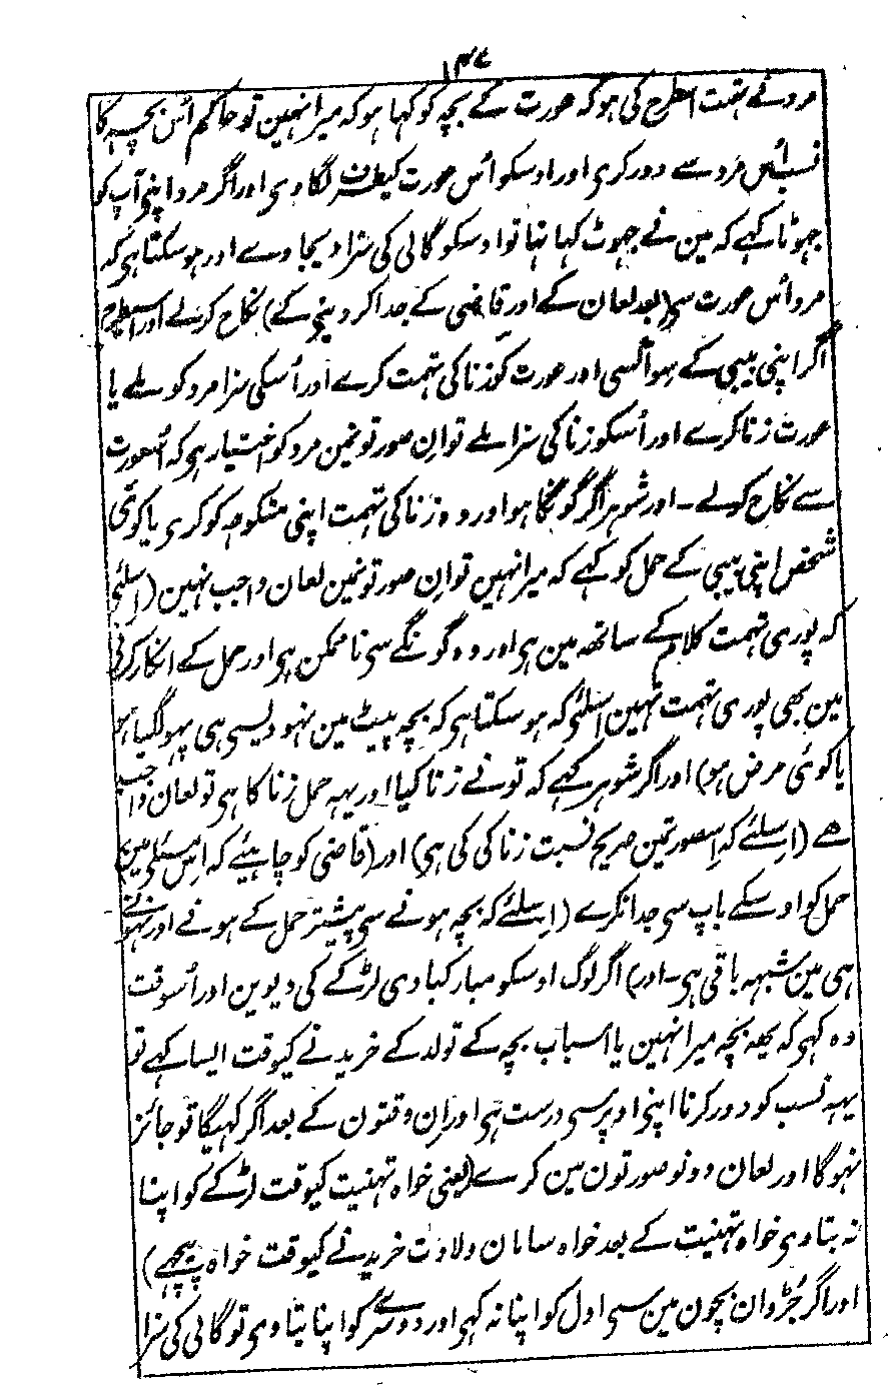 ۱۴۷
مرد نے تہمت اسطرح کی ہو کہ عورت کے بچہ کو کہا ہو کہ میرا نہین تو حاکم اُس بچہ کا
نسب اُس مرد سے دور کری اور اوسکو اُس عورت کیطرف لگا دی اور اگر مرد اپنی آپ کو
جہوٹا کہے کہ مین نے جہوٹ کہا تہا تو اوسکو گالی کی سزا دیجاوے اور ہو سکتا ہی کہ
مرد اُس عورت سی (بعد لعان کے اور قاضی کے جدا کر دینی کے) نکاح کر لے اور اسیطرح
اگر اپنی بیبی کے سوا کسی اور عورت کو زنا کی تہمت کرے اور اُسکی سزا مرد کو ملے یا
عورت زنا کرے اور اُسکو زنا کی سزا ملے تو اِن صورتونمین مرد کو اختیار ہی کہ اُسعورت
سے نکاح کر لے ۔ اور شوہر اگر گونگا ہو اور وہ زنا کی تہمت اپنی منکوحہ کو کری یا کوئی
شخص اپنی بیبی کے حمل کو کہے کہ میرا نہین تو اِن صورتونمین لعان واجب نہین (اِسلئی
کہ پوری تہمت کلام کے ساتھہ مین ہی اور وہ گونگے سی ناممکن ہی اور حمل کے انکار کرنی
مین بھی پوری تہمت نہین اسلئی کہ ہو سکتا ہی کہ بچہ پیٹ مین نہو ویسی ہی پہولگیا ہو
یا کوئی مرض ہو) اور اگر شوہر کہے کہ تونے زنا کیا اور یہہ حمل زنا کا ہی تو لعان واجب
ہے (اِسلئے کہ اِسصورتمین صریح نسبت زنا کی کی ہی) اور (قاضی کو چاہیئے کہ اِس مسئلی مین)
حمل کو اوسکے باپ سی جدا نکرے (اِسلئے کہ بچہ ہونے سی پیشتر حمل کے ہونے اور نہونے
ہی مین شبہہ باقی ہی ۔ اور) اگر لوگ اوسکو مبارکبادی لڑکے کی دیوین اور اُسوقت
وہ کہی کہ یہہ بچہ میرا نہین یا اسباب بچہ کے تولد کے خریدنے کیوقت ایسا کہے تو
یہہ نسب کو دور کرنا اپنی اوپر سی درست ہی اور اِن وقتون کے بعد اگر کہیگا تو جائز
نہوگا اور لعان دونو صورتون مین کرے (یعنی خواہ تہنیت کیوقت لڑکے کو اپنا
نہ بتاوی خواہ تہنیت کے بعد خواہ سامان ولادت خریدنے کیوقت خواہ پیچہے)
اور اگر جُڑوان بچون مین سی اول کو اپنا نہ کہی اور دوسرے کو اپنا بتاوی تو گالی کی سزا